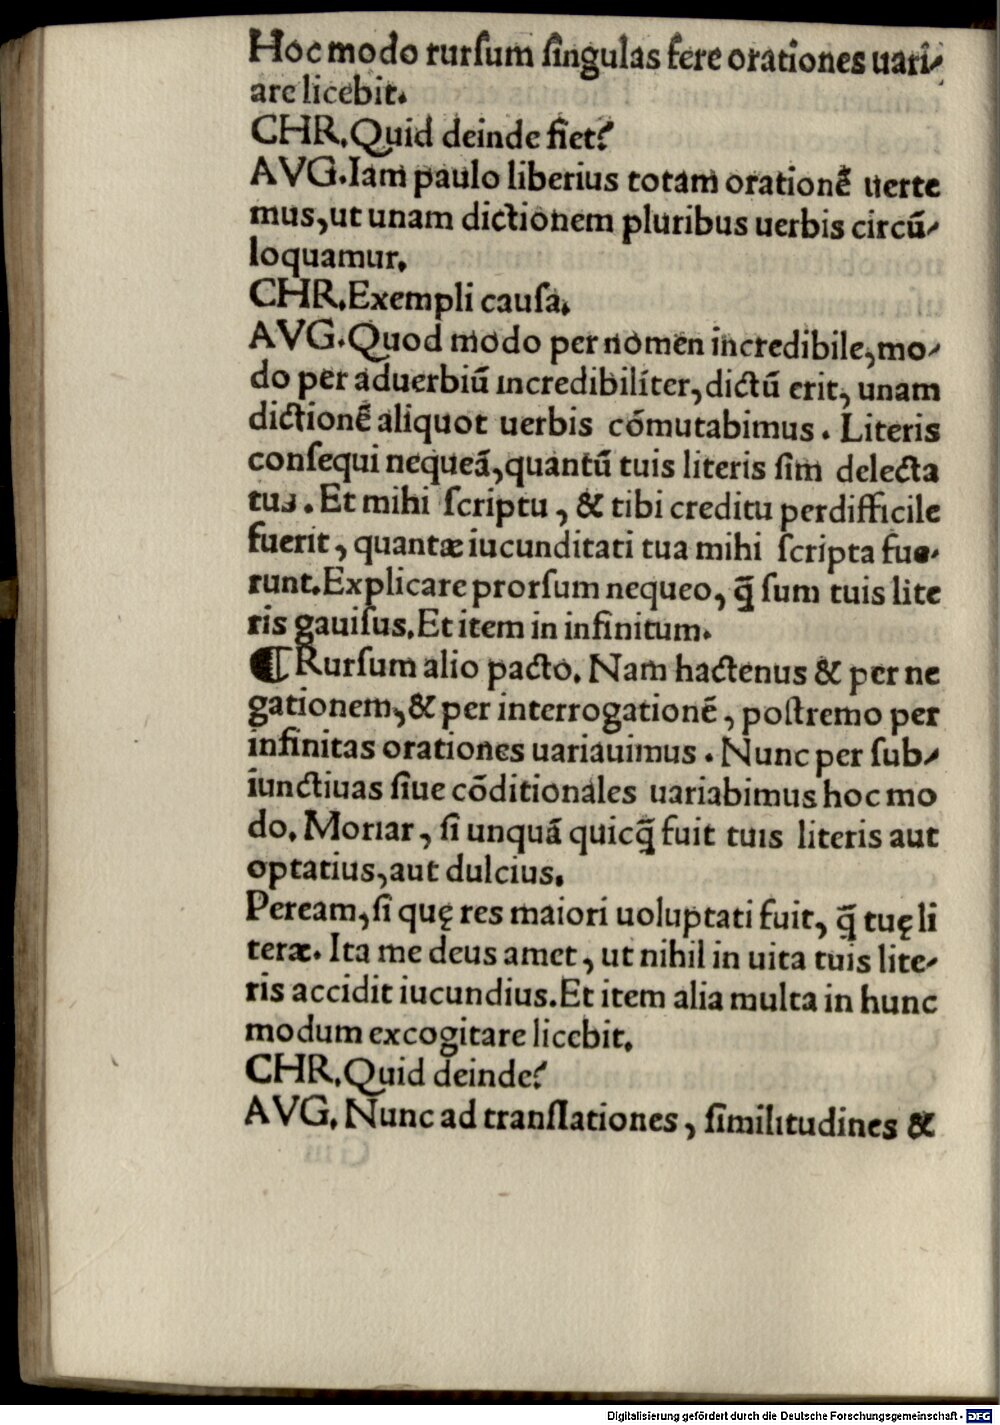 Hoc modo rurſum ſingulas fere orationes uari-
are licebit.
CHR. Quid deinde fiet?
AVG. Iam paulo liberius totam orationē uerte
mus, ut unam dictionem pluribus uerbis circū-
loquamur.
CHR. Exempli cauſa.
AVG. Quod modo per nomen incredibile, mo-
do per aduerbiū incredibiliter, dictū erit, unam
dictionē aliquot uerbis cōmutabimus. Literis
conſequi nequeā, quantū tuis literis ſim delecta
tus. Et mihi ſcriptu, & tibi creditu perdifficile
fuerit, quantæ iucunditati tua mihi ſcripta fue-
runt. Explicare prorſum nequeo, q̄ ſum tuis lite
ris gauiſus. Et item in infinitum.
¶ Rurſum alio pacto. Nam hactenus & per ne
gationem, & per interrogationē, poſtremo per
infinitas orationes uariauimus. Nunc per ſub-
iunctiuas ſiue cōditionales uariabimus hoc mo
do. Moriar, ſi unquā quicq̄ fuit tuis literis aut
optatius, aut dulcius.
Peream, ſi quę res maiori uoluptati fuit, q̄ tuę li
teræ. Ita me deus amet, ut nihil in uita tuis lite-
ris accidit iucundius. Et item alia multa in hunc
modum excogitare licebit.
CHR. Quid deinde?
AVG. Nunc ad tranſlationes, ſimilitudines &
Digitalisierung gefördert durch die Deutsche Forschungsgemeinschaft - DFG